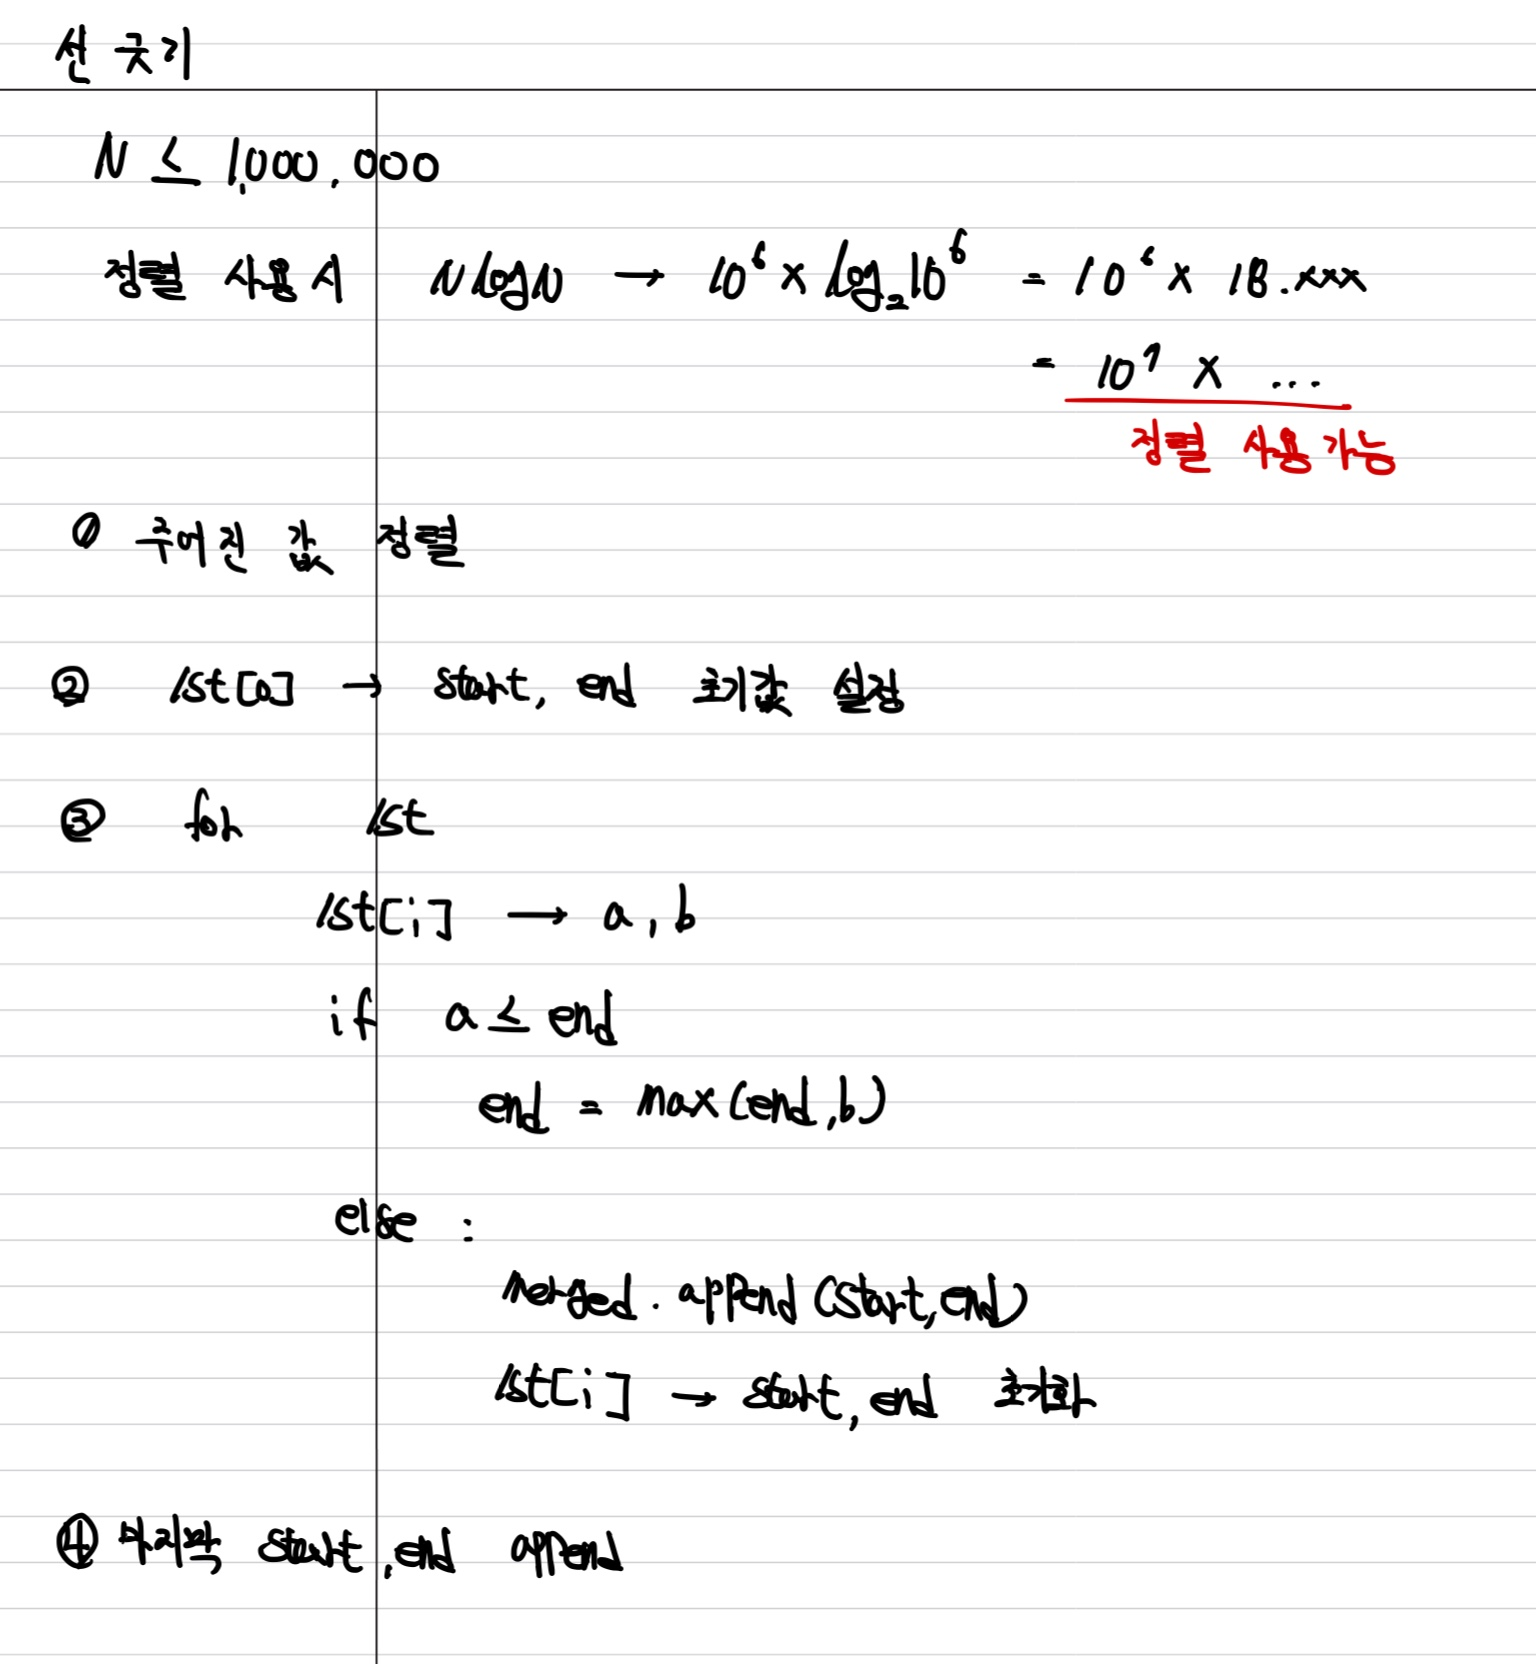 선 긋기
N ≤ 1,000,000
정렬 사용 시 NlogN → 10⁶ × log₂10⁶ = 10⁶ × 18.xxx
= 10⁷ × ...
정렬 사용 가능
① 주어진 값 정렬
② lst[0] → start, end 초기값 설정
③ for lst
lst[i] → a, b
if a ≤ end
end = max(end,b)
else :
merged.append(start,end)
lst[i] → start, end 초기화
④ 마지막 start, end append